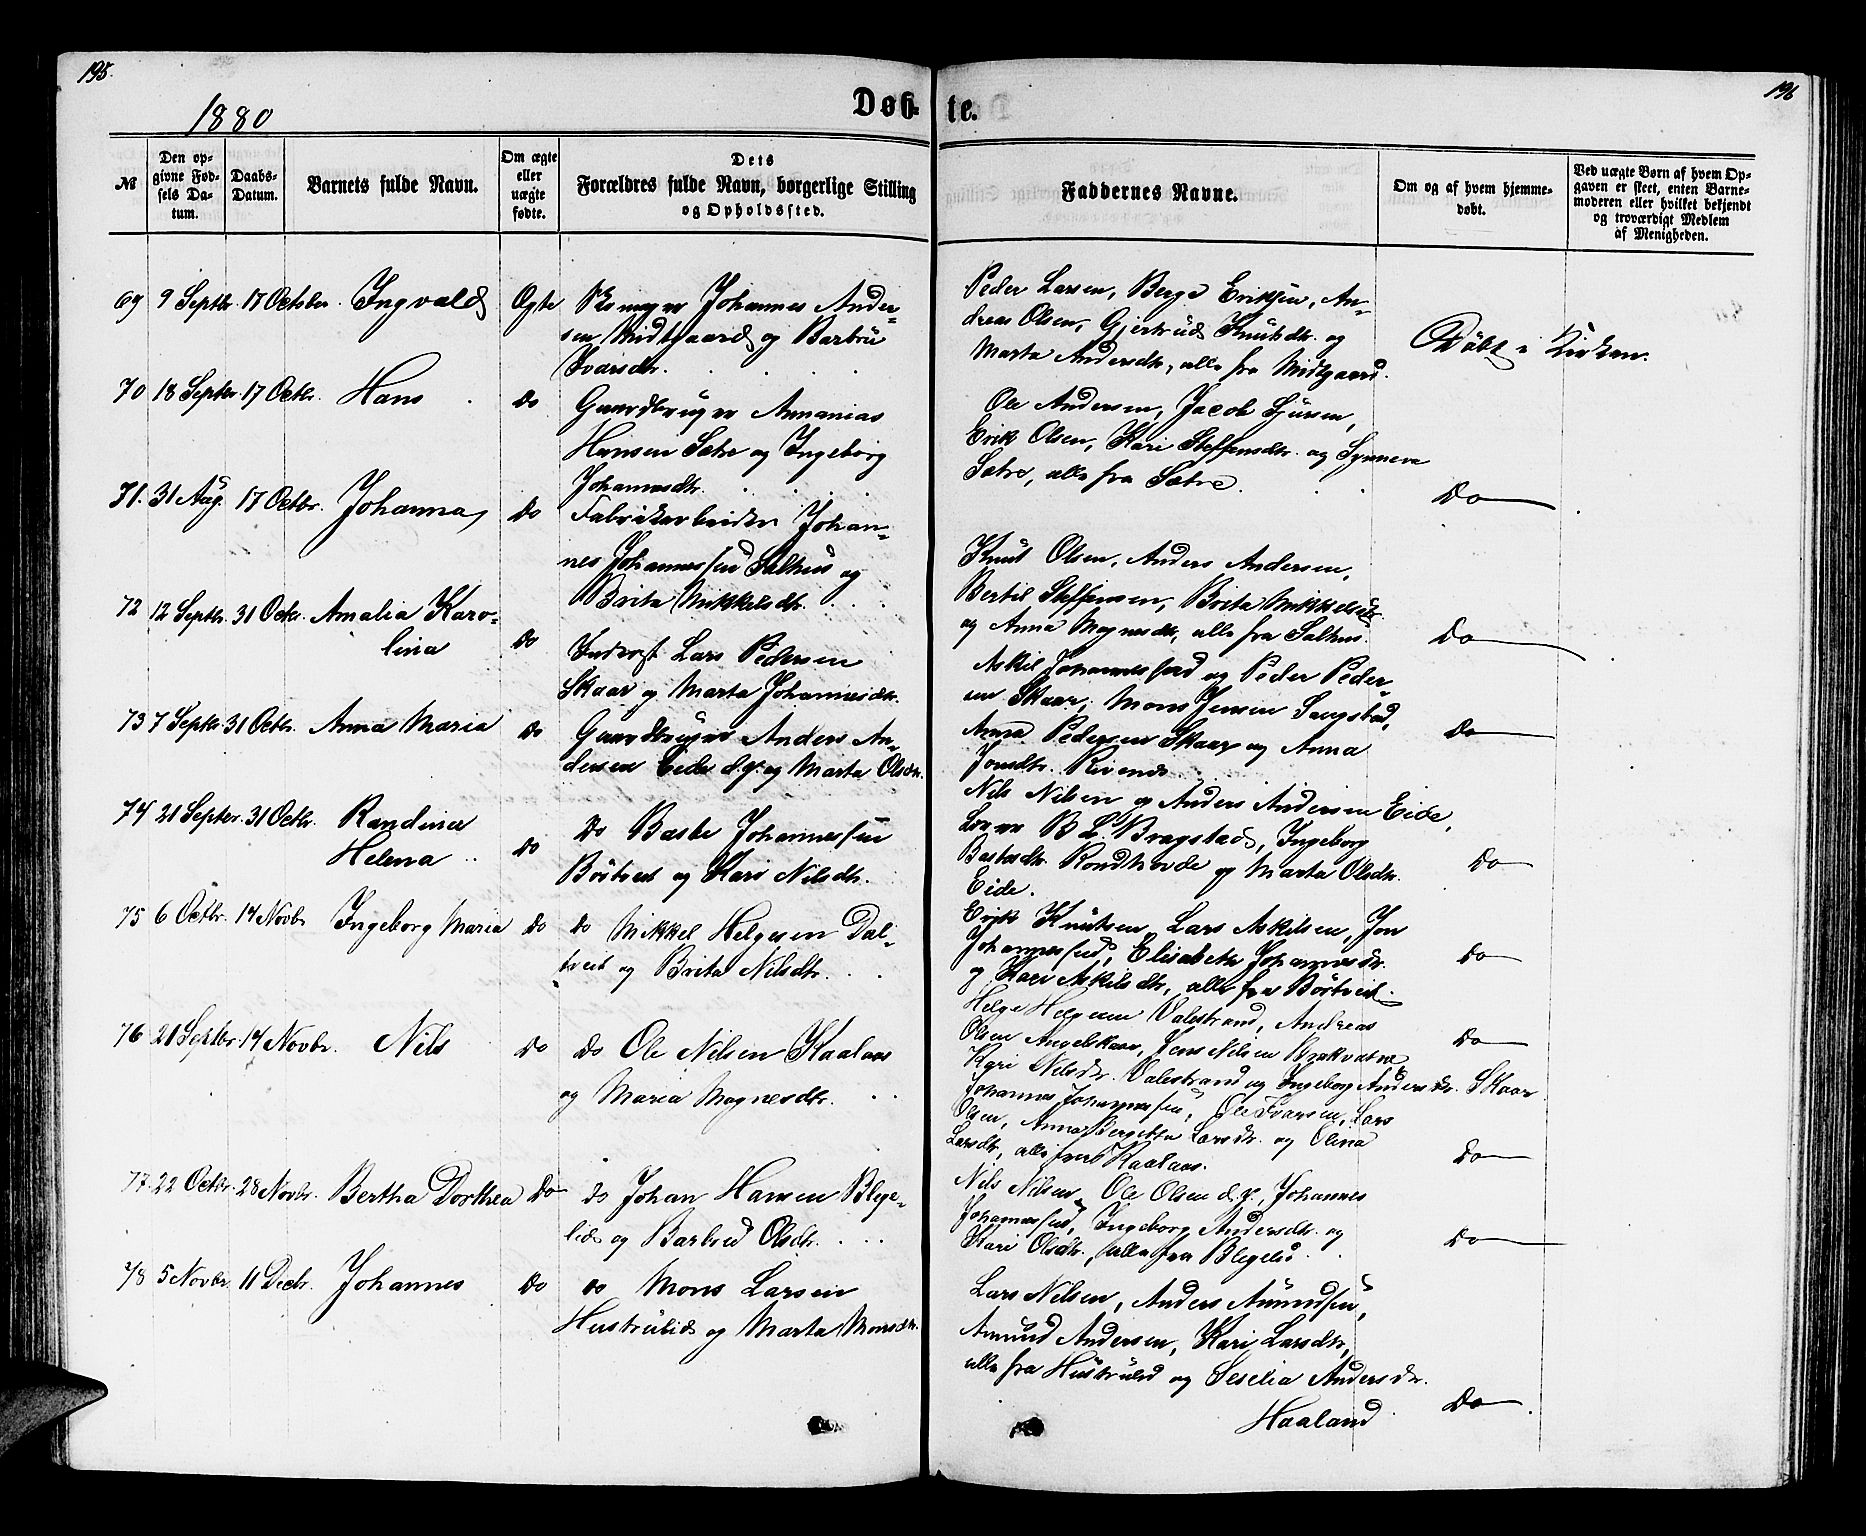 195.
1880
Døb-
№
Den op-
givne Fød-
sels Da-
tum.
Daabs-
Datum.
Barnets fulde Navn.
Om ægte
eller
uægte
fødte.
Dets
Forældres fulde Navn, borgerlige Stilling
og Opholdssted.
69 9 Septbr. 17 October. Ingvald Ægte Johannes Ander-
sen Midtgaard og Barbru
Ivarsdtr.
70 18 Septbr. 17 Octbr. Hans Do Gaardbruger Annanias
Hansen Sætre og Ingeborg
Johannesdtr.
71. 31 Aug. 17 Octbr. Johanna Do Fabrikarbeider Johan-
nes Johannessen Salhus og
Brita Mikkelsdtr.
72 12 Septbr. 31 Octbr. Amalia Karo-
lina Do Inderst Lars Pedersen
Skaar og Marta Johannesdtr.
73 7 Septbr. 31 Octbr. Anna Maria Do Gaardbruger Anders An-
dersen Eide d.y. og Marta Olsdtr.
74 21 Septbr. 31 Octbr. Randina
Helena Do Do Baste Johannessen
Börtveit og Kari Nilsdtr.
75 6 Octbr. 14 Novbr Ingeborg Maria Do Do Mikkel Helgesen Dal-
tveit og Brita Nilsdtr.
76 21 Septbr. 14 Novbr. Nils Do Do Ole Nilsen Kaalaas
og Maria Magnesdtr.
77. 22 Octbr. 28 Novbr. Bertha Dorthea Do Do Johan Hansen Blege-
lid og Barbru Olsdtr.
78 5 Novbr. 11 Decbr. Johannes Do Do Mons Larsen
Hustrulid og Marta Monsdtr.
196
te.
Faddernes Navne.
Om og af hvem hjemme-
døbt.
Ved uægte Børn af hvem Op-
gaven er skeet, enten Barne-
moderen eller hvilket bekjendt
og troværdigt Medlem
af Menigheden.
Peder Larsen, Berge Eriksen, An-
dreas Olsen, Gjertrud Knutsdtr. og
Marta Andersdtr, alle fra Midtgaard.
Döbt i Kirken.
Ole Andersen, Jacob Sjursen,
Erik Olsen, Kari Steffensdtr. og Synneva
Sætre, alle fra Sætre.
Do
Knut Olsen, Anders Andersen,
Bertil Steffensen, Brita Mikkelsdtr
og Anna Magnesdtr, alle fra Salhus.
Do
Askil Johannessen og Peder Peder-
sen Skaar, Mons Jensen
Anna Pedersen Skaar og Anna
Jonsdtr.
Do
Nils Nilsen og Anders Andersen Eide,
B. L. Bragstad, Ingeborg
Bastesdtr. Rondhovde og Marta Olsdtr.
Eide.
Do
Erik Knutsen, Lars Askilsen, Jon
Johannessen, Elisabeth Johannesdtr.
og Kari Askilsdtr, alle fra Börtveit.
Do
Helge Helgesen Valestrand, Andreas
Olsen Angelskaar, Jens Nilsen
Kari Nilsdtr. Valestrand og Ingeborg Andersdtr. Skaar
Do
Johannes Johannessen, Ole Ivarsen, Lars
Olsen, Anna Bergitta Larsdtr. og Olena
Larsdtr, alle fra Kaalaas.
Do
Nils Nilsen, Ole Olsen d. y., Johannes
Johannessen, Ingeborg Andersdtr. og
Kari Olsdtr, alle fra Blegelid.
Do
Lars Nilsen, Anders Amundsen,
Amund Andersen, Kari Larsdtr,
alle fra Hustrulid og Sesilia Andersdtr.
Haaland
Do